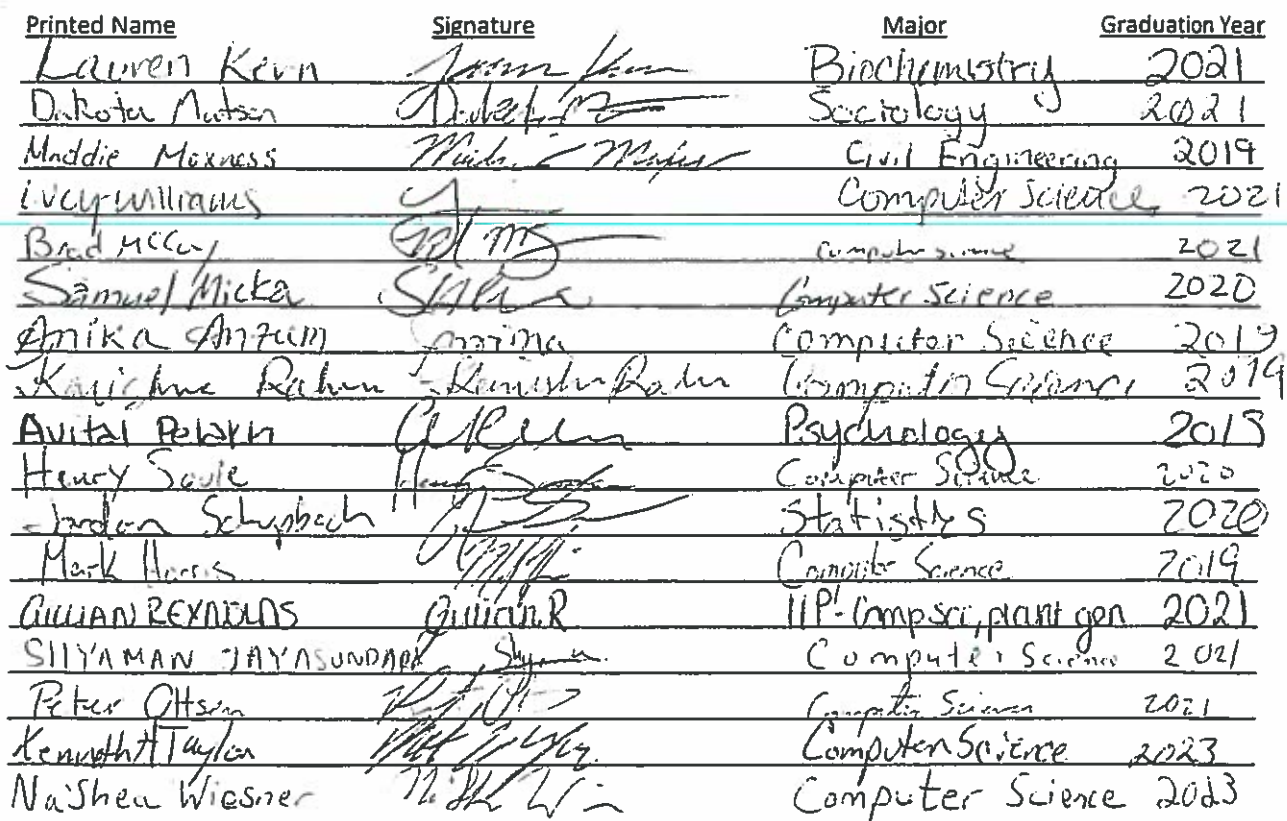 Printed Name Signature Major Graduation Year
Lauren Kern Biochemistry 2021
Dakota Matson Sociology 2021
Maddie Moxness Civil Engineering 2019
Lucy Williams Computer Science 2021
Brad McCoy Computer Science 2021
Samuel Micka Computer Science 2020
Anika Anzum Computer Science 2019
Rahman Computer Science 2019
Avital Psychology
Henry Soule Computer Science 2020
Jordan Schupbach Statistics 2020
Mark Harris Computer Science 2019
GILLIAN REYNOLDS Gillian.R IIP-Comp sci, plant gen 2021
JAYASUNDARA Computer Science 2021
Peter Ottsen Computer Science 2021
Kenneth H Taylor Computer Science 2023
Na'Shea Wiesner Computer Science 2023